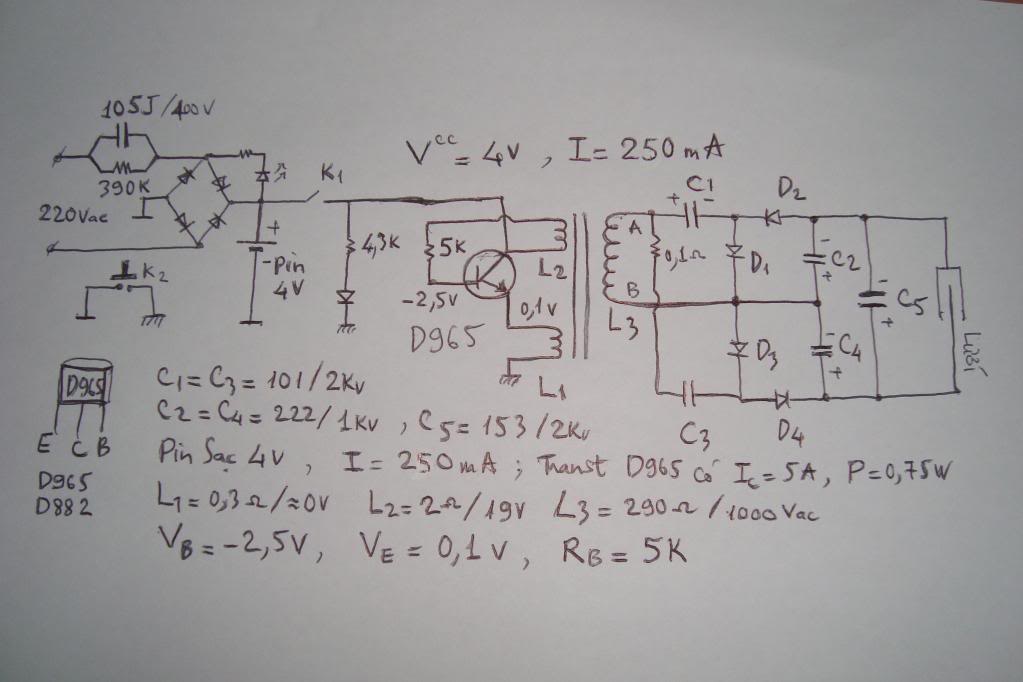 105J/400V
390K
220Vac
K2
+
-Pin
4V
K1
Vcc = 4V , I = 250mA
4,3K
5K
-2,5V
D965
0,1V
L2
L1
L3
A
B
0,1Ω
+ C1 -
D2
D1
- C2
+
- C5
+
D3
- C4
+
C3
D4
Lưới
D965
E C B
D965
D882
C1 = C3 = 101/2Kv
C2 = C4 = 222/1Kv , C5 = 153/2Kv
Pin Sạc 4V , I = 250mA ; Transt D965 có Ic = 5A, P = 0,75W
L1 = 0,3Ω/≈0V L2 = 2Ω/19V L3 = 290Ω/1000Vac
VB = -2,5V, VE = 0,1V , RB = 5K